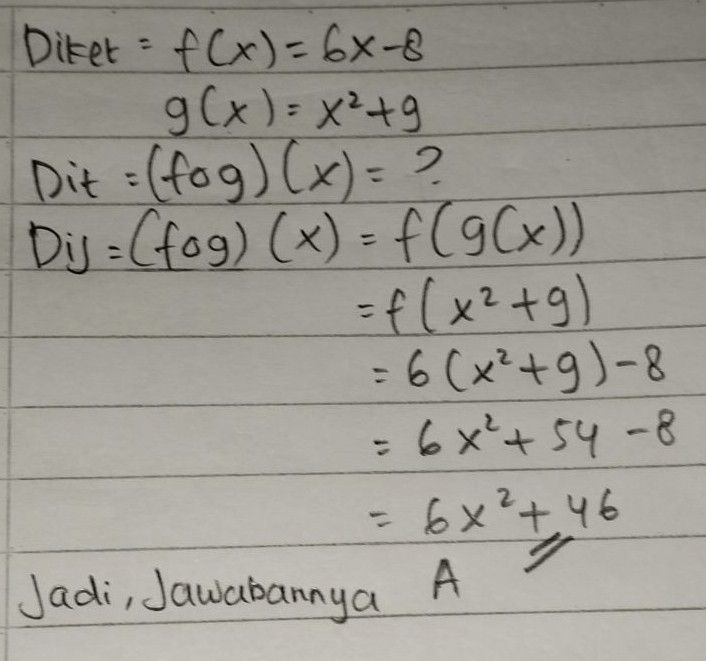 Diket = f(x) = 6x-8
g(x) = x²+9
Dit = (fog)(x) = ?
Dij = (fog)(x) = f(g(x))
= f(x²+9)
= 6(x²+9)-8
= 6x²+54-8
= 6x²+46
Jadi, Jawabannya A